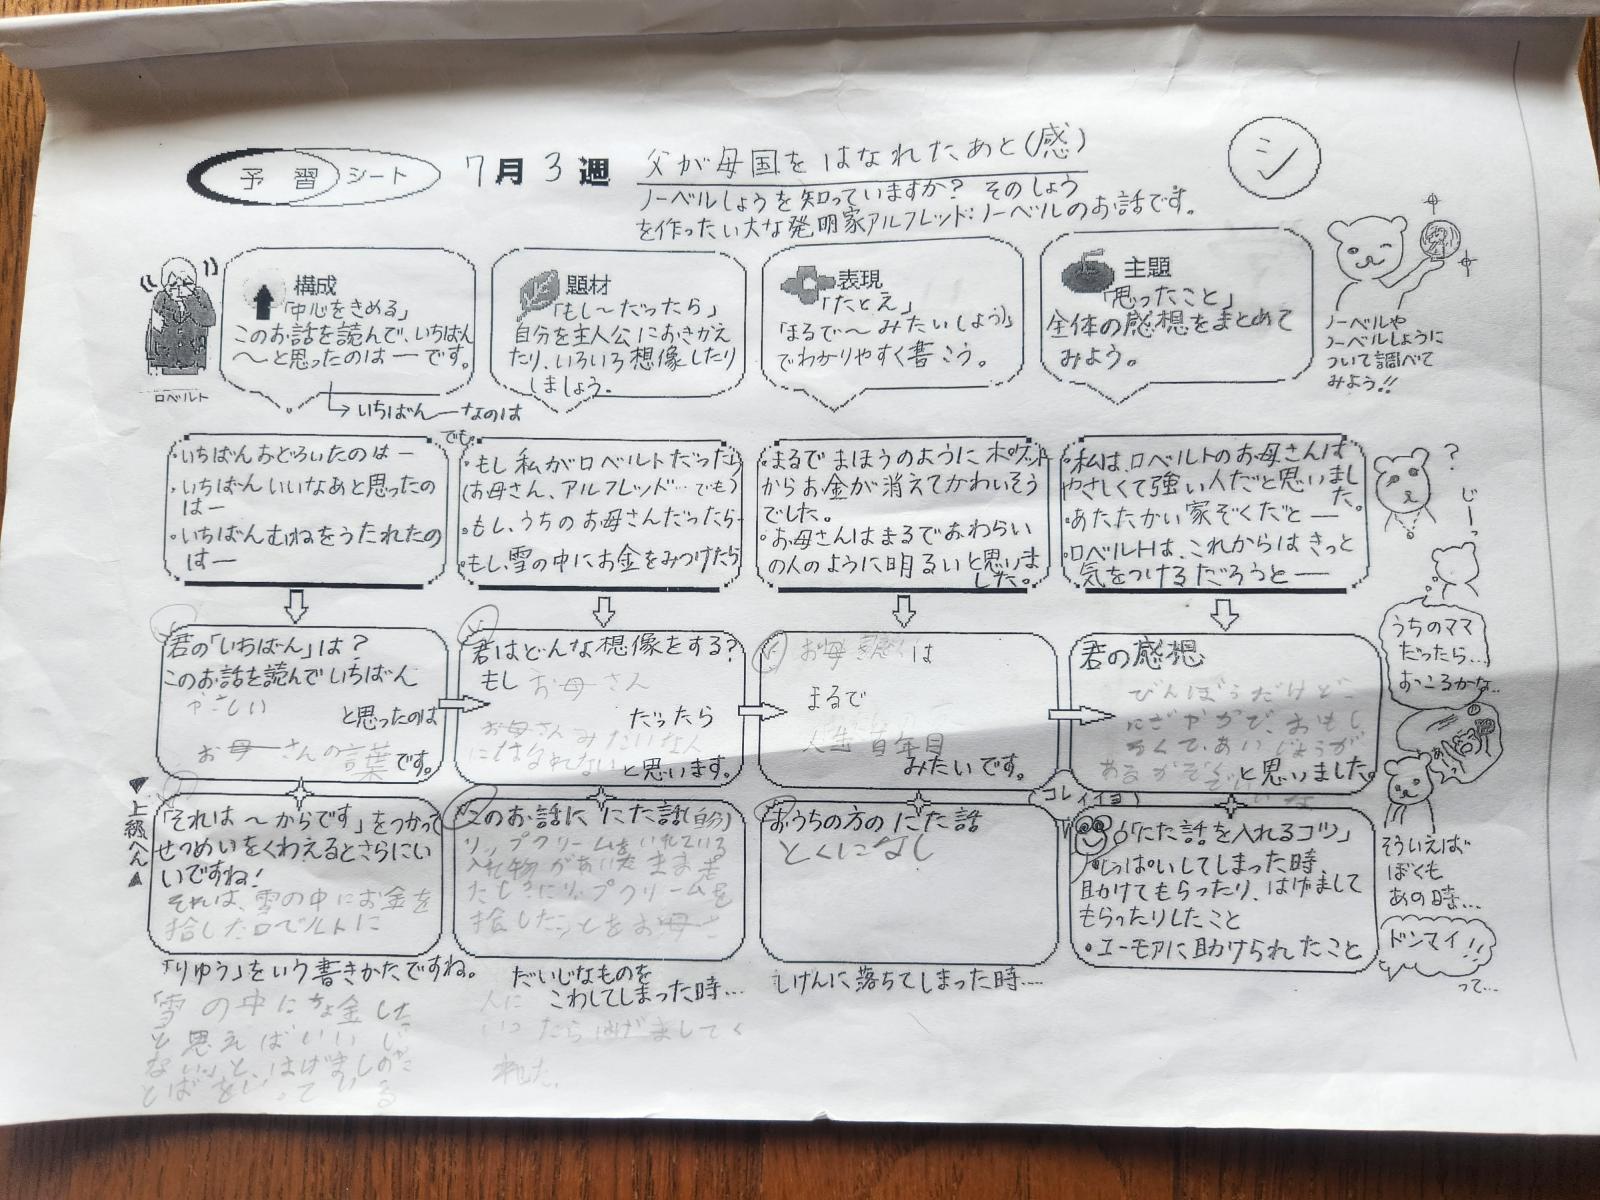 予習シート 7月3週 父が母国をはなれたあと(感)
シ
ノーベルしょうを知っていますか? そのしょう
を作ったい大な発明家アルフレッド・ノーベルのお話です。
ロベルト
構成
「中心をきめる」
このお話を読んで、いちばん
〜と思ったのは ― です。
↳ いちばん―なのは
題材
「もし〜だったら」
自分を主人公におきかえ
たり、いろいろ想像したり
しましょう。
表現
「たとえ」
「まるで〜みたい(しょう)」
でわかりやすく書こう。
主題
「思ったこと」
全体の感想をまとめて
みよう。
ノーベルや
ノーベルしょうに
ついて調べて
みよう!!
・いちばんおどろいたのは ―
・いちばんいいなあと思ったの
は―
・いちばんむねをうたれたの
は―
でも
・もし私がロベルトだったら
(お母さん、アルフレッド…でも)
・もし、うちのお母さんだったら
・もし、雪の中にお金をみつけたら
・まるでまほうのようにポケット
からお金が消えてかわいそう
でした。
・お母さんはまるでおわらい
の人のように明るいと思いま
した。
・私は、ロベルトのお母さんは
やさしくて強い人だと思いまし
た。
・あたたかい家ぞくだと ―
・ロベルトは、これからはきっと
気をつけるだろうと ―
?
じーっ
うちのママ
だったら…
おこるかな…
君の「いちばん」は?
このお話を読んでいちばん
やさしい
と思ったのは
お母さんの言葉です。
君はどんな想像をする?
もし お母さん
だったら
お母さんみたいな人
にはなれないと思います。
は
まるで
人生百年目
みたいです。
君の感想
びんぼうだけど
にぎやかで、おもし
ろくて、あいじょうが
あるかぞくと思いました。
▼上級へん▲
「それは〜からです」をつかって
せつめいをくわえるとさらにい
いですね!
それは、雪の中にお金を
拾したロベルトに
「りゆう」をいう書きかたですね。
「雪の中にお金した
と思えばいいじゃ
ない」と、はげましのこ
とばをいっている
このお話ににた話(自分)
リップクリームをいれている
入れ物があいたまま
リップクリームを
拾したことをお母さ
だいじなものを
こわしてしまった時…
人に
いったらはげましてく
れた。
おうちの方のにた話
とくになし
しけんに落ちてしまった時……
コレイイヨ
「にた話を入れるコツ」
・しっぱいしてしまった時
助けてもらったり、はげまして
もらったりしたこと
・ユーモアに助けられたこと
そういえば
ぼくも
あの時…
ドンマイ!!
って…